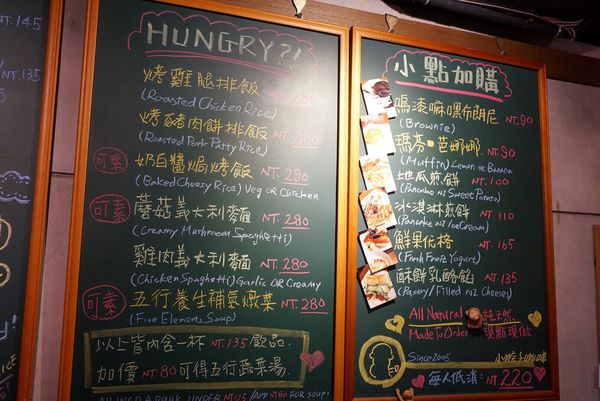 NT.145
NT.135
HUNGRY?!
烤雞腿排飯 280
(Roasted Chicken Rice)
烤豬肉餅排飯 280
(Roasted Pork Patty Rice)
可素 奶白醬焗烤飯 NT.290
(Baked Cheesy Rice) Veg OR Chicken
可素 蘑菇義大利麵 NT.280
(Creamy Mushroom Spaghetti)
雞肉義大利麵 NT.280
(Chicken Spaghetti) Garlic OR Creamy
可素 五行養生補氣燉菜 NT.280
(Five Elements Soup)
以上皆內含一杯 NT.135 飲品.
加價 NT.80 可得五行蔬菜湯.
UNDER NT.135 / ADD NT.80 FOR SOUP!
小點加購
布朗尼 NT.90
(Brownie)
瑪芬 芭娜娜 NT.90
(Muffin) Lemon OR Banana
地瓜煎餅 NT.100
(Pancake w/ Sweet Potato)
冰淇淋煎餅 NT.110
(Pancake w/ Ice Cream)
鮮果优格 NT.165
(Fresh Fruie Yogurt)
酥餅乳酪餡 NT.135
(Pastry/Filled w/ Cheeses)
All Natural 純天然.
Made To Order 現點現做.
Since 2005
每人低消: NT 220